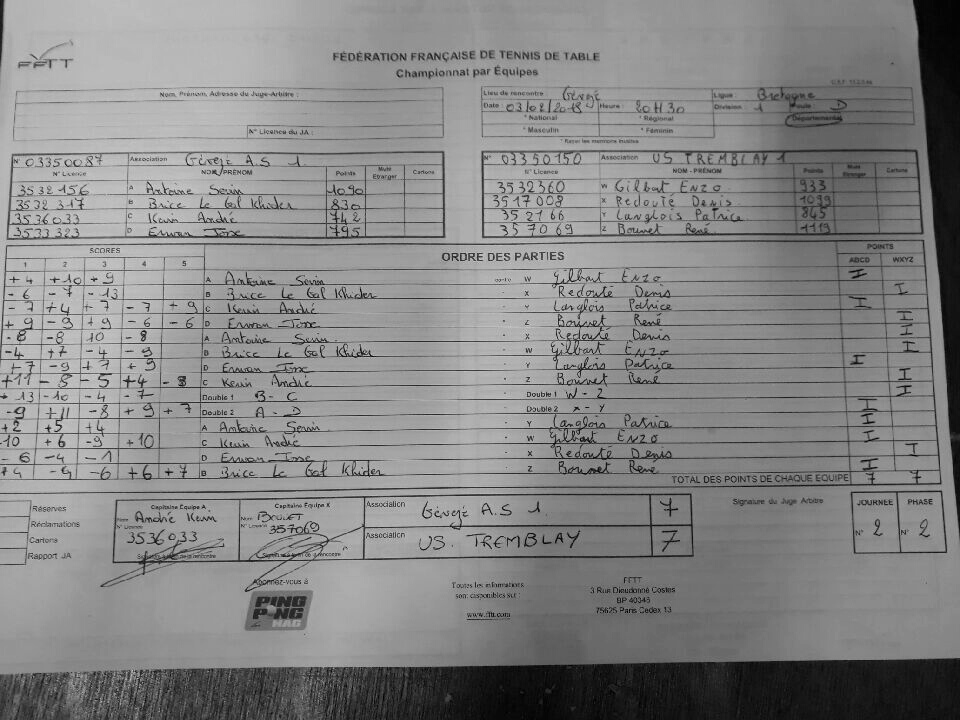 FFTT
FÉDÉRATION FRANÇAISE DE TENNIS DE TABLE
Championnat par Équipes
Nom, Prénom, Adresse du Juge-Arbitre :
N° Licence du JA :
Lieu de rencontre : Gévezé Ligue : Bretagne
Date : 03/02/2018 Heure : 20H30 Division : 1 Poule : D
* National * Régional Départemental
* Masculin * Féminin
* Rayer les mentions inutiles
N° 03350087 Association Gévezé A.S 1
N° Licence NOM - PRÉNOM Points Muté Etranger Cartons
3532156 A Antoine Serin 1090
3532317 B Brice Le Gal Khider 830
3536033 C Kevin André 742
3533323 D Erwan Josse 795
N° 03350150 Association US TREMBLAY 1
N° Licence NOM - PRÉNOM Points Muté Etranger Cartons
3532360 W Gilbert Enzo 933
3517008 X Redouté Denis 1099
352166 Y Langlois Patrice 845
357069 Z Bouvet René 1119
SCORES ORDRE DES PARTIES POINTS
1 2 3 4 5 ABCD WXYZ
+4 +10 +9 A Antoine Serin contre W Gilbert Enzo I
-6 -7 -13 B Brice Le Gal Khider - X Redouté Denis I
-7 +4 +7 -7 +9 C Kevin André - Y Langlois Patrice I
+9 -9 +9 -6 -6 D Erwan Josse - Z Bouvet René I
-8 -8 10 -8 A Antoine Serin - X Redouté Denis I
-4 +7 -4 -9 B Brice Le Gal Khider - W Gilbert Enzo I
+7 -9 +7 +9 D Erwan Josse - Y Langlois Patrice I
+11 -8 -5 +4 -8 C Kevin André - Z Bouvet René I
+13 -10 -4 -7 Double 1 B-C - Double 1 W-Z I
-9 +11 -8 +9 +7 Double 2 A-D - Double 2 X-Y I
+2 +5 +4 A Antoine Serin - Y Langlois Patrice I
10 +6 -9 +10 C Kevin André - W Gilbert Enzo I
-6 -4 -1 D Erwan Josse - X Redouté Denis I
+4 -9 -6 +6 +7 B Brice Le Gal Khider - Z Bouvet René I
TOTAL DES POINTS DE CHAQUE EQUIPE 7 7
Réserves
Réclamations
Cartons
Rapport JA
Capitaine Equipe A
Nom André Kevin
N° Licence
3536033
Capitaine Equipe X
Nom Bouvet
N° Licence 357069
Association Gévezé A.S 1. 7
Association US. TREMBLAY 7
Signature du Juge Arbitre
JOURNEE PHASE
N° 2 N° 2
Abonnez-vous à
PING PONG MAG
Toutes les informations
sont disponibles sur :
www.fftt.com
FFTT
3 Rue Dieudonné Costes
BP 40348
75625 Paris Cedex 13